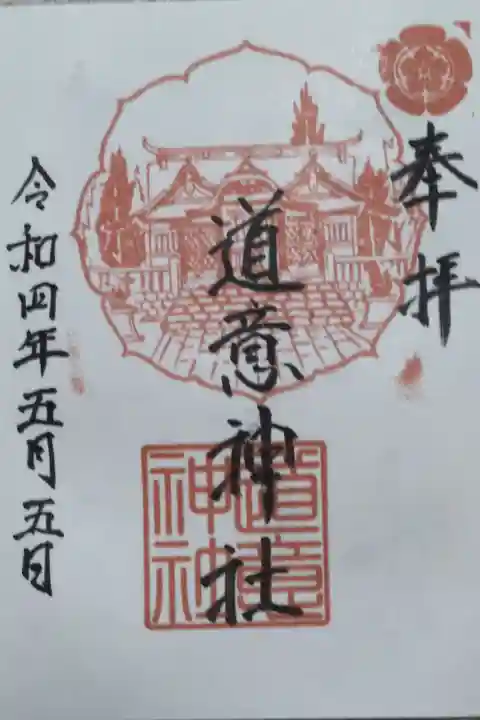 奉拝
道意神社
令和四年五月五日
道意
神社